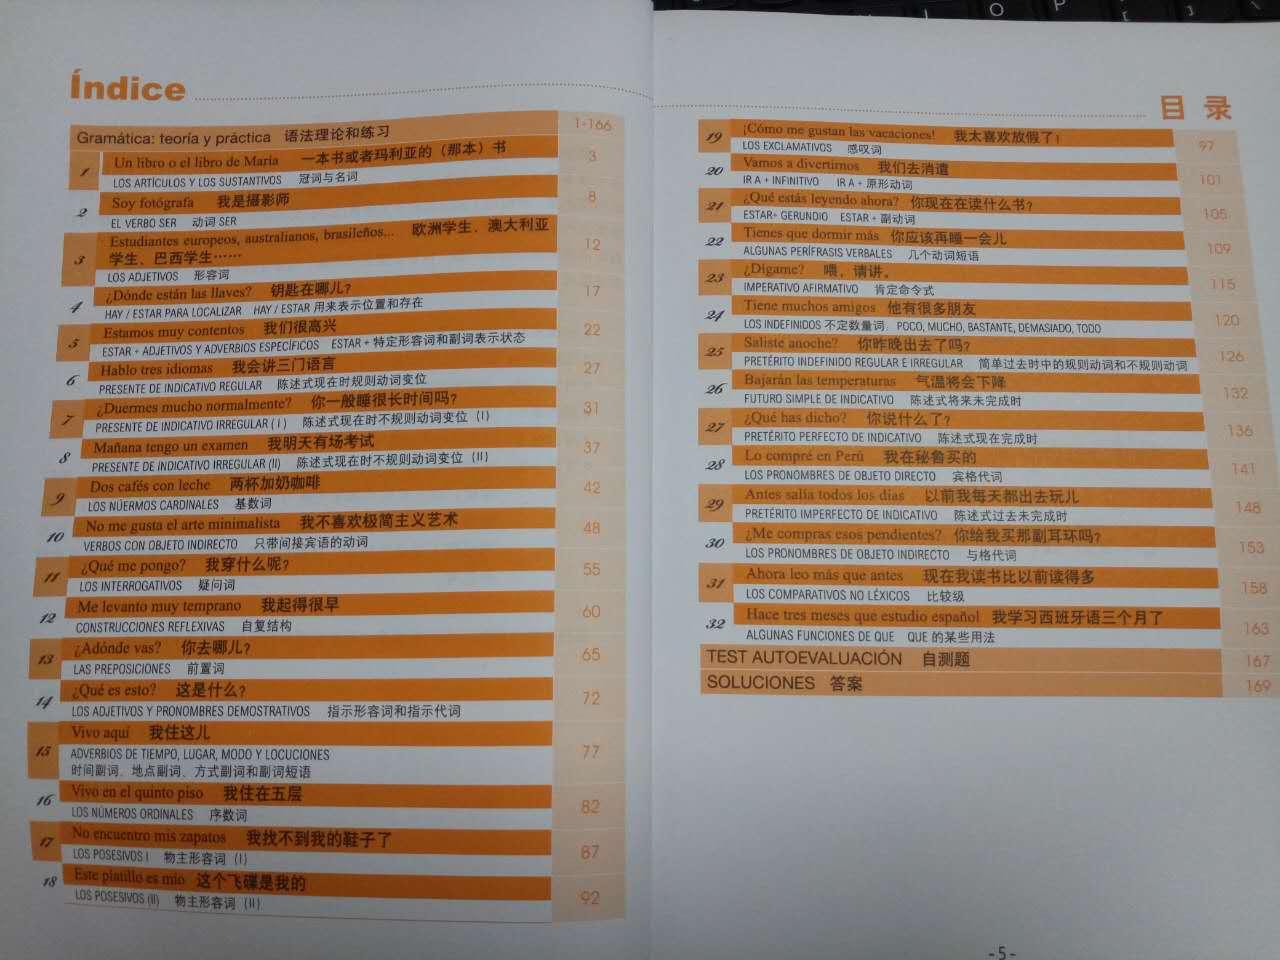 Índice
Gramática: teoría y práctica 语法理论和练习 1-166
1 Un libro o el libro de María 一本书或者玛利亚的（那本）书 3
LOS ARTÍCULOS Y LOS SUSTANTIVOS 冠词与名词
2 Soy fotógrafa 我是摄影师 8
EL VERBO SER 动词 SER
3 Estudiantes europeos, australianos, brasileños... 欧洲学生、澳大利亚
学生、巴西学生…… 12
LOS ADJETIVOS 形容词
4 ¿Dónde están las llaves? 钥匙在哪儿？ 17
HAY / ESTAR PARA LOCALIZAR HAY / ESTAR 用来表示位置和存在
5 Estamos muy contentos 我们很高兴 22
ESTAR + ADJETIVOS Y ADVERBIOS ESPECÍFICOS ESTAR + 特定形容词和副词表示状态
6 Hablo tres idiomas 我会讲三门语言 27
PRESENTE DE INDICATIVO REGULAR 陈述式现在时规则动词变位
7 ¿Duermes mucho normalmente? 你一般睡很长时间吗？ 31
PRESENTE DE INDICATIVO IRREGULAR ( I ) 陈述式现在时不规则动词变位（I）
8 Mañana tengo un examen 我明天有场考试 37
PRESENTE DE INDICATIVO IRREGULAR (II) 陈述式现在时不规则动词变位（II）
9 Dos cafés con leche 两杯加奶咖啡 42
LOS NÚERMOS CARDINALES 基数词
10 No me gusta el arte minimalista 我不喜欢极简主义艺术 48
VERBOS CON OBJETO INDIRECTO 只带间接宾语的动词
11 ¿Qué me pongo? 我穿什么呢？ 55
LOS INTERROGATIVOS 疑问词
12 Me levanto muy temprano 我起得很早 60
CONSTRUCCIONES REFLEXIVAS 自复结构
13 ¿Adónde vas? 你去哪儿？ 65
LAS PREPOSICIONES 前置词
14 ¿Qué es esto? 这是什么？ 72
LOS ADJETIVOS Y PRONOMBRES DEMOSTRATIVOS 指示形容词和指示代词
15 Vivo aquí 我住这儿 77
ADVERBIOS DE TIEMPO, LUGAR, MODO Y LOCUCIONES
时间副词、地点副词、方式副词和副词短语
16 Vivo en el quinto piso 我住在五层 82
LOS NÚMEROS ORDINALES 序数词
17 No encuentro mis zapatos 我找不到我的鞋子了 87
LOS POSESIVOS I 物主形容词（I）
18 Este platillo es mío 这个飞碟是我的 92
LOS POSESIVOS (II) 物主形容词（II）
目 录
19 ¡Cómo me gustan las vacaciones! 我太喜欢放假了！ 97
LOS EXCLAMATIVOS 感叹词
20 Vamos a divertirnos 我们去消遣 101
IR A + INFINITIVO IR A + 原形动词
21 ¿Qué estás leyendo ahora? 你现在在读什么书？ 105
ESTAR+ GERUNDIO ESTAR + 副动词
22 Tienes que dormir más 你应该再睡一会儿 109
ALGUNAS PERÍFRASIS VERBALES 几个动词短语
23 ¿Dígame? 喂，请讲。 115
IMPERATIVO AFIRMATIVO 肯定命令式
24 Tiene muchos amigos 他有很多朋友 120
LOS INDEFINIDOS 不定数量词 POCO, MUCHO, BASTANTE, DEMASIADO, TODO
25 Saliste anoche? 你昨晚出去了吗？ 126
PRETÉRITO INDEFINIDO REGULAR E IRREGULAR 简单过去时中的规则动词和不规则动词
26 Bajarán las temperaturas 气温将会下降 132
FUTURO SIMPLE DE INDICATIVO 陈述式将来未完成时
27 ¿Qué has dicho? 你说什么了？ 136
PRETÉRITO PERFECTO DE INDICATIVO 陈述式现在完成时
28 Lo compré en Perú 我在秘鲁买的 141
LOS PRONOMBRES DE OBJETO DIRECTO 宾格代词
29 Antes salía todos los días 以前我每天都出去玩儿 148
PRETÉRITO IMPERFECTO DE INDICATIVO 陈述式过去未完成时
30 ¿Me compras esos pendientes? 你给我买那副耳环吗？ 153
LOS PRONOMBRES DE OBJETO INDIRECTO 与格代词
31 Ahora leo más que antes 现在我读书比以前读得多 158
LOS COMPARATIVOS NO LÉXICOS 比较级
32 Hace tres meses que estudio español 我学习西班牙语三个月了 163
ALGUNAS FUNCIONES DE QUE QUE 的某些用法
TEST AUTOEVALUACIÓN 自测题 167
SOLUCIONES 答案 169
-5-